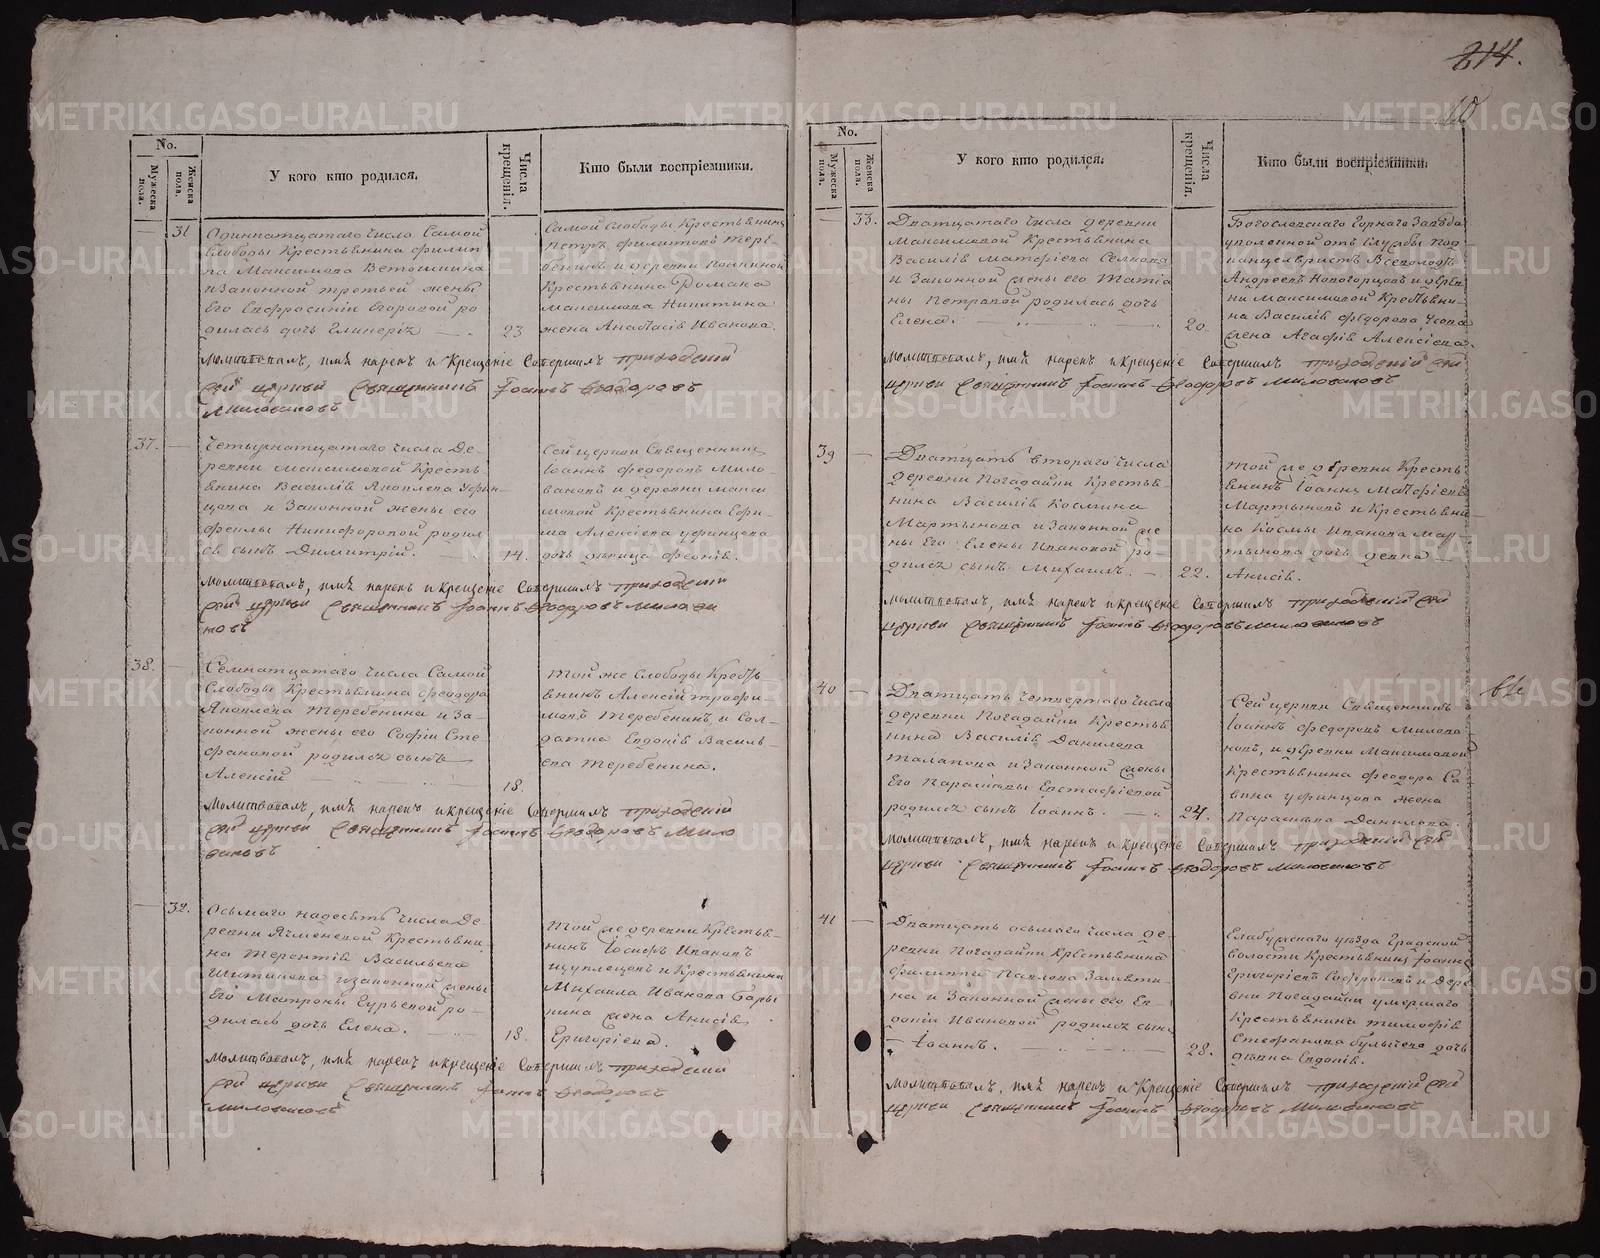 214.
10
No.
Мужеска пола.
Женска пола.
У кого кто родился.
Числа крещенія.
Кто были воспріемники.
31
Одиннатцатаго числа Самой
Слободы Крестьянина Филип
па Максимова Ветошкина
и Законной третьей жены
Его Евфросиніи Егоровой ро
дилась дочь Гликерія
23
Самой Слободы Крестьянинъ
Петръ Филиповъ Тере-
бенинъ и деревни
Крестьянина Романа
Максимова Никитина
жена Анастасія Иванова.
Молитвовалъ, имя нарекъ и Крещеніе Совершилъ приходскій
сей церкви Священникъ Іоаннъ Ѳеодоровъ
Миловановъ
37.
Четырнатцатаго числа Де-
ревни Максимовой Кресть-
янина Василія Яковлева Уфин-
цова и Законной жены его
Феклы Никифоровой родил
ся сынъ Димитрій.
14.
Сей церкви Священникъ
Іоаннъ Федоровъ Мило-
вановъ и деревни Макси
мовой Крестьянина Ефи-
ма Алексіева Уфинцова
дочь дѣвица Февнія.
Молитвовалъ, имя нарекъ и Крещеніе Совершилъ приходскій
сей церкви Священникъ Іоаннъ Ѳеодоровъ Милова
новъ
38.
Семнатцатаго числа Самой
Слободы Крестьянина Феодора
Яковлева Теребенина и За-
конной жены его Софіи Сте
фановой родился сынъ
Алексій
18.
Той же Слободы Кресть
янинъ Алексій Трофи-
мовъ Теребенинъ, и Сол-
датка Евдокія Василь-
ева Теребенина.
Молитвовалъ, имя нарекъ и Крещеніе Совершилъ приходскій
сей церкви Священникъ Іоаннъ Ѳеодоровъ Мило
вановъ
32.
Осьмаго надесять числа Де
ревни Ячменевой Крестьяни-
на Терентія Васильева
Шитикова и законной жены
Его Матроны Гурьевой ро-
дилась дочь Елена.
18.
Той же деревни Крестья-
нинъ Іосифъ Ивановъ
Щуплецовъ и Крестьянина
Михаила Иванова Бары
кина жена Анисія
Григоріева.
Молитвовалъ, имя нарекъ и крещеніе Совершилъ приходскій
сей церкви Священникъ Іоаннъ Ѳеодоровъ
Миловановъ
No.
Мужеска пола.
Женска пола.
У кого кто родился.
Числа крещенія.
Кто были воспріемники.
33.
Дватцатаго числа деревни
Максимовой Крестьянина
Василія Матфіева
и Законной жены его Татіа
ны Петровой родилась дочь
Елена.
20.
Богословскаго Горнаго Завода
уволенной отъ Службы Под
канцеляристъ Всеволодъ
Андреевъ Новогорцовъ и дерев
ни Максимовой Крестьяни-
на Василія Федорова
жена Агафія Алексіева.
Молитвовалъ, имя нарекъ и крещеніе Совершилъ приходскій сей
церкви Священникъ Іоаннъ Ѳеодоровъ Миловановъ
39
Дватцать втораго числа
деревни Погадайки Крестья-
нина Василія Космина
Мартынова и Законной же
ны Его Елены Ивановой ро-
дился сынъ Михаилъ.
22.
Той же деревни Кресть
янинъ Іоаннъ Матфіевъ
Мартыновъ и Крестьяни-
на Космы Иванова Мар-
тынова дочь девка
Анисія.
Молитвовалъ, имя нарекъ и крещеніе Совершилъ приходскій сей
церкви Священникъ Іоаннъ Ѳеодоровъ Миловановъ
40
Дватцать четвертаго числа
деревни Погадайки Крестья
нина Василія Данилова
Талапова и Законной жены
Его Параскевы Евстафіевой
родился сынъ Іоаннъ.
24.
Сей церкви Священникъ
Іоаннъ Федоровъ Милова
новъ, и деревни Максимовой
Крестьянина Феодора Са
вина Уфинцова жена
Параскева Данилова.
Молитвовалъ, имя нарекъ и крещеніе Совершилъ приходскій сей
церкви Священникъ Іоаннъ Ѳеодоровъ Миловановъ
41
Дватцать осьмаго числа де-
ревни Погадайки Крестьянина
Филиппа Павлова Замяти-
на и Законной жены его Ев
докіи Ивановой родился сынъ
Іоаннъ.
28.
Елабужскаго уѣзда Граховской
волости Крестьянинъ Іоаннъ
Григоріевъ Софроновъ и Дере
вни Погадайки умершаго
Крестьянина Тимофія
Стефанова Булычева дочь
дѣвка Евдокія.
Молитвовалъ, имя нарекъ и Крещеніе Совершилъ приходскій сей
церкви Священникъ Іоаннъ Ѳеодоровъ Миловановъ
METRIKI.GASO-URAL.RU